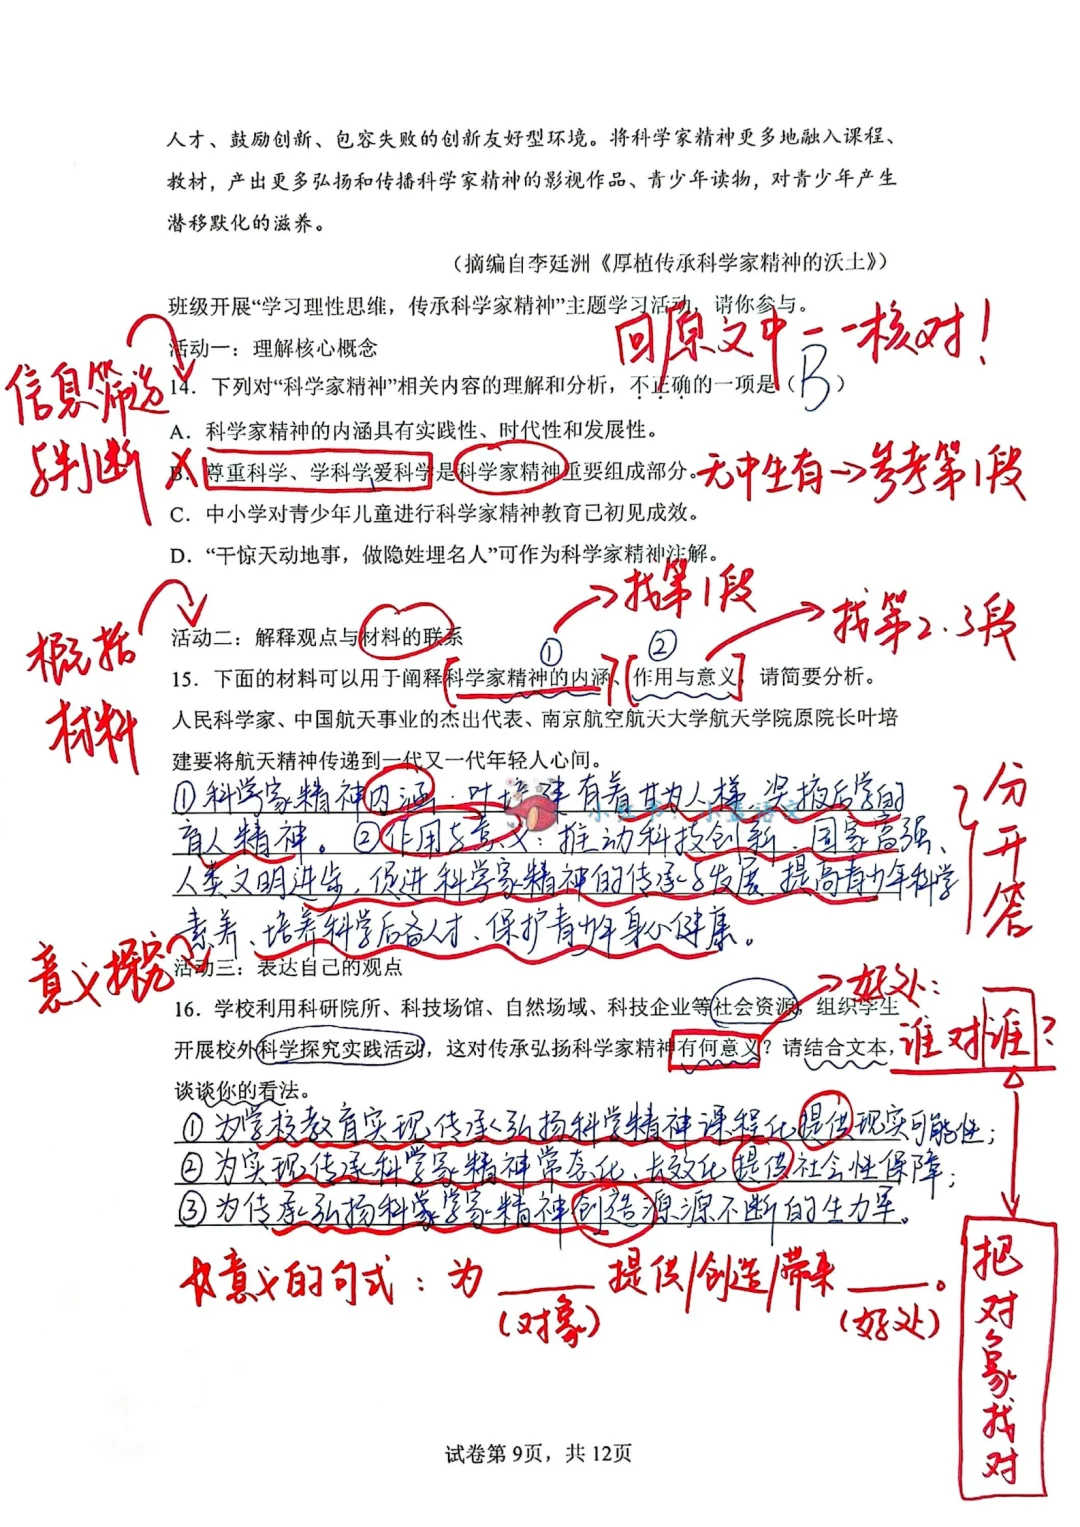 人才、鼓励创新、包容失败的创新友好型环境。将科学家精神更多地融入课程、
教材，产出更多弘扬和传播科学家精神的影视作品、青少年读物，对青少年产生
潜移默化的滋养。
（摘编自李廷洲《厚植传承科学家精神的沃土》）
班级开展“学习理性思维，传承科学家精神”主题学习活动，请你参与。
回原文中一一核对！
活动一：理解核心概念
信息筛选
与判断
14．下列对“科学家精神”相关内容的理解和分析，不正确的一项是（B）
A．科学家精神的内涵具有实践性、时代性和发展性。
B．尊重科学、学科学爱科学是科学家精神重要组成部分。
无中生有→参考第1段
C．中小学对青少年儿童进行科学家精神教育已初见成效。
D．“干惊天动地事，做隐姓埋名人”可作为科学家精神注解。
找第1段
找第2.3段
概括
材料
活动二：解释观点与材料的联系
① ②
15．下面的材料可以用于阐释科学家精神的内涵、作用与意义，请简要分析。
人民科学家、中国航天事业的杰出代表、南京航空航天大学航天学院原院长叶培
建要将航天精神传递到一代又一代年轻人心间。
①科学家精神内涵：叶培建有着甘为人梯、奖掖后学的
小红书：小孟语文
育人精神。②作用与意义：推动科技创新、国家富强、
人类文明进步，促进科学家精神的传承与发展、提高青少年科学
素养、培养科学后备人才、保护青少年身心健康。
分开答
意义探究
活动三：表达自己的观点
16．学校利用科研院所、科技场馆、自然场域、科技企业等社会资源，组织学生
开展校外科学探究实践活动，这对传承弘扬科学家精神有何意义？请结合文本，
谈谈你的看法。
好处：
谁对谁？
①为学校教育实现传承弘扬科学精神课程化提供现实可能性；
②为实现传承科学家精神常态化、长效化提供社会性保障；
③为传承弘扬科学家精神创造源源不断的生力军。
意义的句式：为____提供/创造/带来____。
（对象）
（好处）
把对象找对
试卷第9页，共12页